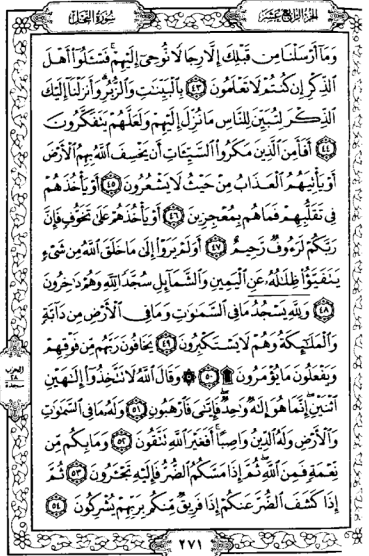 الجزء الرابع عشر
سورة النحل
وَمَآ أَرْسَلْنَا مِن قَبْلِكَ إِلَّا رِجَالًا نُّوحِىٓ إِلَيْهِمْ ۚ فَسْـَٔلُوٓا۟ أَهْلَ
ٱلذِّكْرِ إِن كُنتُمْ لَا تَعْلَمُونَ ٤٣ بِٱلْبَيِّنَـٰتِ وَٱلزُّبُرِ ۗ وَأَنزَلْنَآ إِلَيْكَ
ٱلذِّكْرَ لِتُبَيِّنَ لِلنَّاسِ مَا نُزِّلَ إِلَيْهِمْ وَلَعَلَّهُمْ يَتَفَكَّرُونَ
٤٤ أَفَأَمِنَ ٱلَّذِينَ مَكَرُوا۟ ٱلسَّيِّـَٔاتِ أَن يَخْسِفَ ٱللَّهُ بِهِمُ ٱلْأَرْضَ
أَوْ يَأْتِيَهُمُ ٱلْعَذَابُ مِنْ حَيْثُ لَا يَشْعُرُونَ ٤٥ أَوْ يَأْخُذَهُمْ
فِى تَقَلُّبِهِمْ فَمَا هُم بِمُعْجِزِينَ ٤٦ أَوْ يَأْخُذَهُمْ عَلَىٰ تَخَوُّفٍ فَإِنَّ
رَبَّكُمْ لَرَءُوفٌ رَّحِيمٌ ٤٧ أَوَلَمْ يَرَوْا۟ إِلَىٰ مَا خَلَقَ ٱللَّهُ مِن شَىْءٍ
يَتَفَيَّؤُا۟ ظِلَـٰلُهُۥ عَنِ ٱلْيَمِينِ وَٱلشَّمَآئِلِ سُجَّدًا لِّلَّهِ وَهُمْ دَٰخِرُونَ
٤٨ وَلِلَّهِ يَسْجُدُ مَا فِى ٱلسَّمَـٰوَٰتِ وَمَا فِى ٱلْأَرْضِ مِن دَآبَّةٍ
وَٱلْمَلَـٰٓئِكَةُ وَهُمْ لَا يَسْتَكْبِرُونَ ٤٩ يَخَافُونَ رَبَّهُم مِّن فَوْقِهِمْ
وَيَفْعَلُونَ مَا يُؤْمَرُونَ ۩ ٥٠ ۞ وَقَالَ ٱللَّهُ لَا تَتَّخِذُوٓا۟ إِلَـٰهَيْنِ
ٱثْنَيْنِ ۖ إِنَّمَا هُوَ إِلَـٰهٌ وَٰحِدٌ ۖ فَإِيَّـٰىَ فَٱرْهَبُونِ ٥١ وَلَهُۥ مَا فِى ٱلسَّمَـٰوَٰتِ
وَٱلْأَرْضِ وَلَهُ ٱلدِّينُ وَاصِبًا ۚ أَفَغَيْرَ ٱللَّهِ تَتَّقُونَ ٥٢ وَمَا بِكُم مِّن
نِّعْمَةٍ فَمِنَ ٱللَّهِ ۖ ثُمَّ إِذَا مَسَّكُمُ ٱلضُّرُّ فَإِلَيْهِ تَجْـَٔرُونَ ٥٣ ثُمَّ
إِذَا كَشَفَ ٱلضُّرَّ عَنكُمْ إِذَا فَرِيقٌ مِّنكُم بِرَبِّهِمْ يُشْرِكُونَ ٥٤
الحزب
٢٨
سجدة
٢٧١